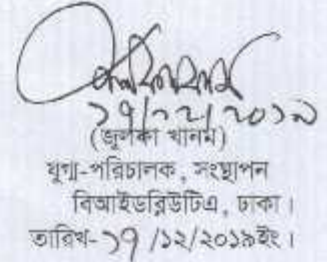 ১৭/১২/২০১৯
(জুলেকা খানম)
যুগ্ম-পরিচালক, সংস্থাপন
বিআইডব্লিউটিএ, ঢাকা।
তারিখ-১৭ /১২/২০১৯ইং।